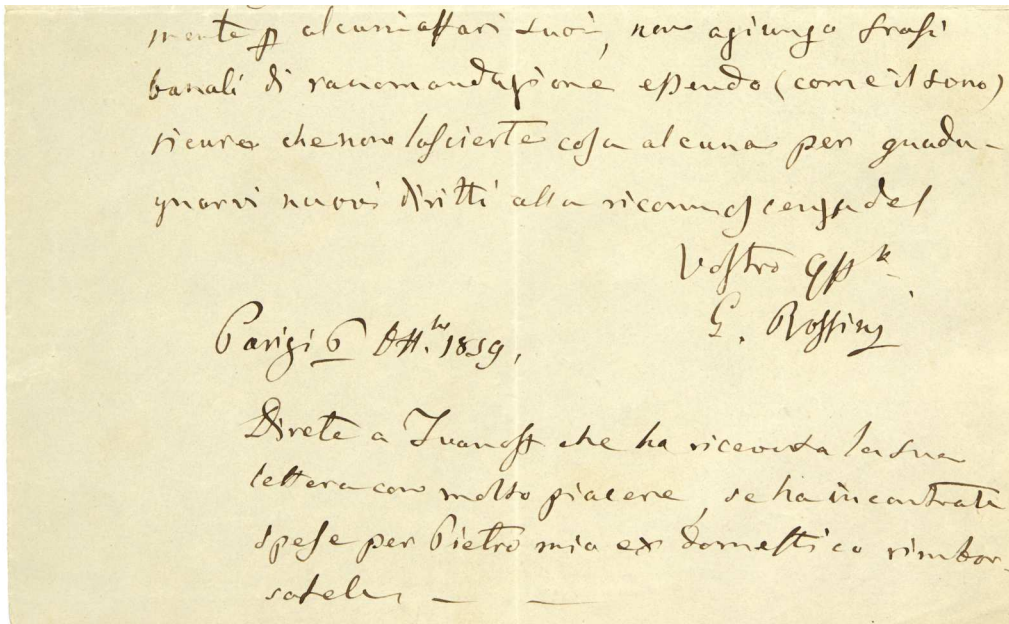 mente p alcuni affari suoi, non agiungo frasi
banali di racomandazione essendo (come il sono)
sicuro che non lascierte cosa alcuna per guada-
gnarvi nuovi diritti alla riconnoscenza del
Vostro
G. Rossini
Parigi 6 1859.
Direte a Ivanoff che ha ricevuta la sua
lettera con molto piacere, se ha incontrate
spese per Pietro mio ex domestico rimbor-
satela — —